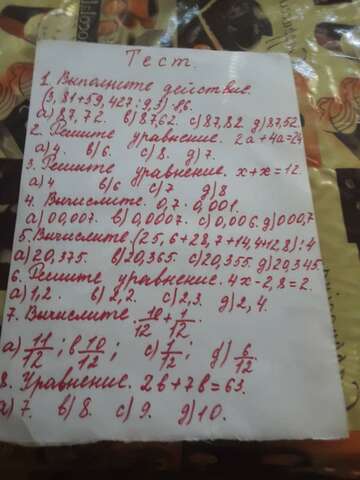 Тест.
1. Выполните действие.
(3,81+59,427:9,3)·8,6.
а) 87,72. в) 87,62. с) 87,82 д) 87,52
2. Решите уравнение. 2а+4а=24
а) 4. в) 6. с) 8. д) 7.
3. Решите уравнение. х+х=12.
а) 4 в) 6 с) 7 д) 8
4. Вычислите. 0,7·0,001.
а) 00,007. в) 0,0007. с) 0,006. д) 000,7
5. Вычислите. (25,6+28,7+14,4+12,8):4
а) 20,375. в) 20,365. с) 20,355. д) 20,345.
6. Решите уравнение. 4х-2,8=2.
а) 1,2. в) 2,2. с) 2,3. д) 2,4.
7. Вычислите. 10/12+1/12.
а) 11/12; в) 10/12; с) 1/12; д) 6/12.
8. Уравнение. 2в+7в=63.
а) 7. в) 8. с) 9. д) 10.